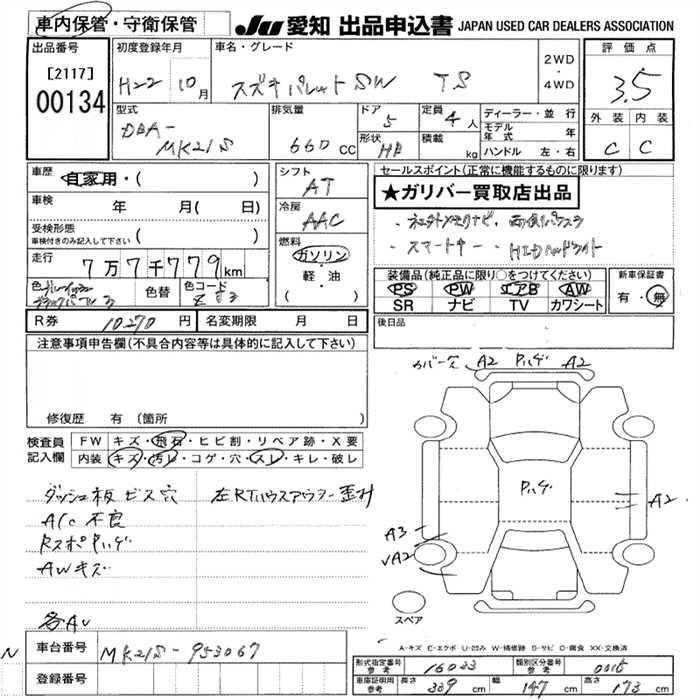 車内保管・守衛保管 JU 愛知 出品申込書 JAPAN USED CAR DEALERS ASSOCIATION
出品番号 初度登録年月 車名・グレード 評価点
[2117] 00134 H22 10月 スズキ パレット SW TS 2WD・4WD 3.5
型式 排気量 ドア 定員 ディーラー・並行 外装 内装
DBA-MK21S 660cc 5 4人 モデル年式 年 C C
形状 積載 kg ハンドル 左・右
車歴 自家用・( ) シフト AT セールスポイント(正常に機能するものに限ります)
★ガリバー買取店出品
車検 年 月(日) 冷房 AAC
受検形態 ( )
車検付きのみ記入して下さい
スマートキー・HIDヘッドライト
走行 7万7千779km 燃料 ガソリン・軽・油 ( )
装備品(純正品に限り○をつけてください) 新車保証書
色 色替 色コード
PS PW エアB AW 有・無
SR ナビ TV カワシート
R券 10270円 名変期限 月 日 後日品
注意事項申告欄(不具合内容等は具体的に記入して下さい)
カバー穴 A2 Pハゲ A2
修復歴 有 (箇所 )
検査員記入欄 FW キズ・飛石・ヒビ割・リペア跡・X要
内装 キズ・汚レ・コゲ・穴・スレ・キレ・破レ
ダッシュ板ビス穴
Pハゲ A2
A/C不良
A3
RスポPハゲ
√A2
AWキズ
スペア
各AU
A-キズ E-エクボ U-凹み W-補修跡 S-サビ C-腐食 XX-交換済
N 車台番号 MK21S-953067
形式指定番号 参考 16033 類別区分番号 参考
登録番号
車庫証明用 参考 長さ 339cm 幅 147cm 高さ 173cm